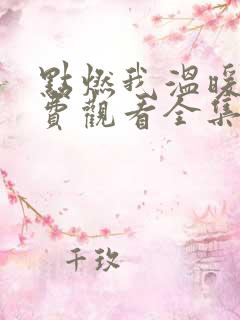 點燃我溫暖
費觀看全集
千玫